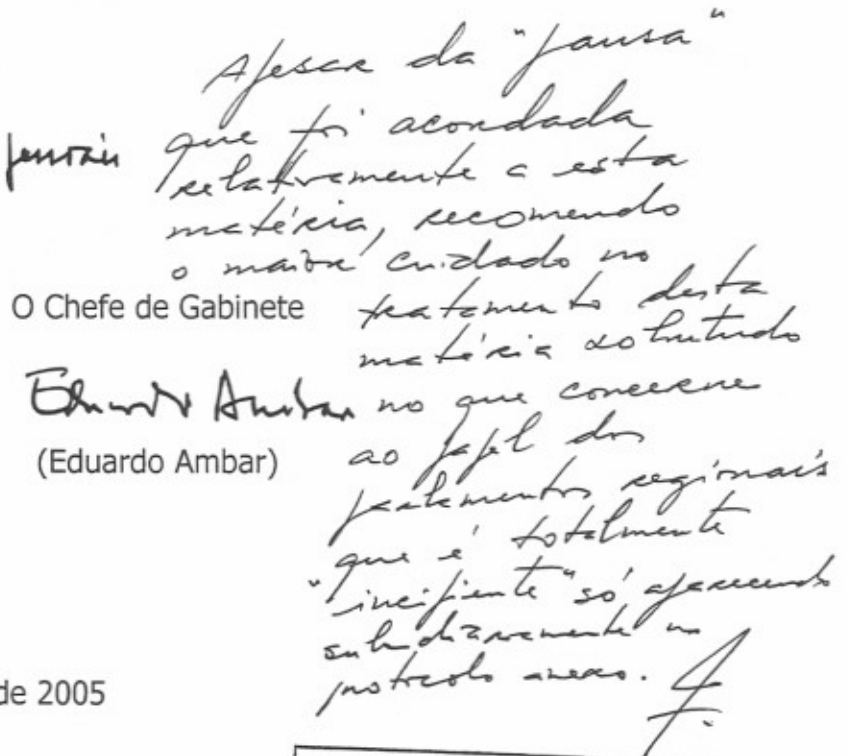 Apesar da "pausa"
que foi acordada
relativamente a esta
matéria, recomendo
o maior cuidado no
tratamento desta
matéria sobretudo
no que concerne
ao papel dos
parlamentos regionais
que é totalmente
"incipiente" só aparecendo
subsidiariamente no
protocolo anexo.
O Chefe de Gabinete
Eduardo Ambar
(Eduardo Ambar)
de 2005